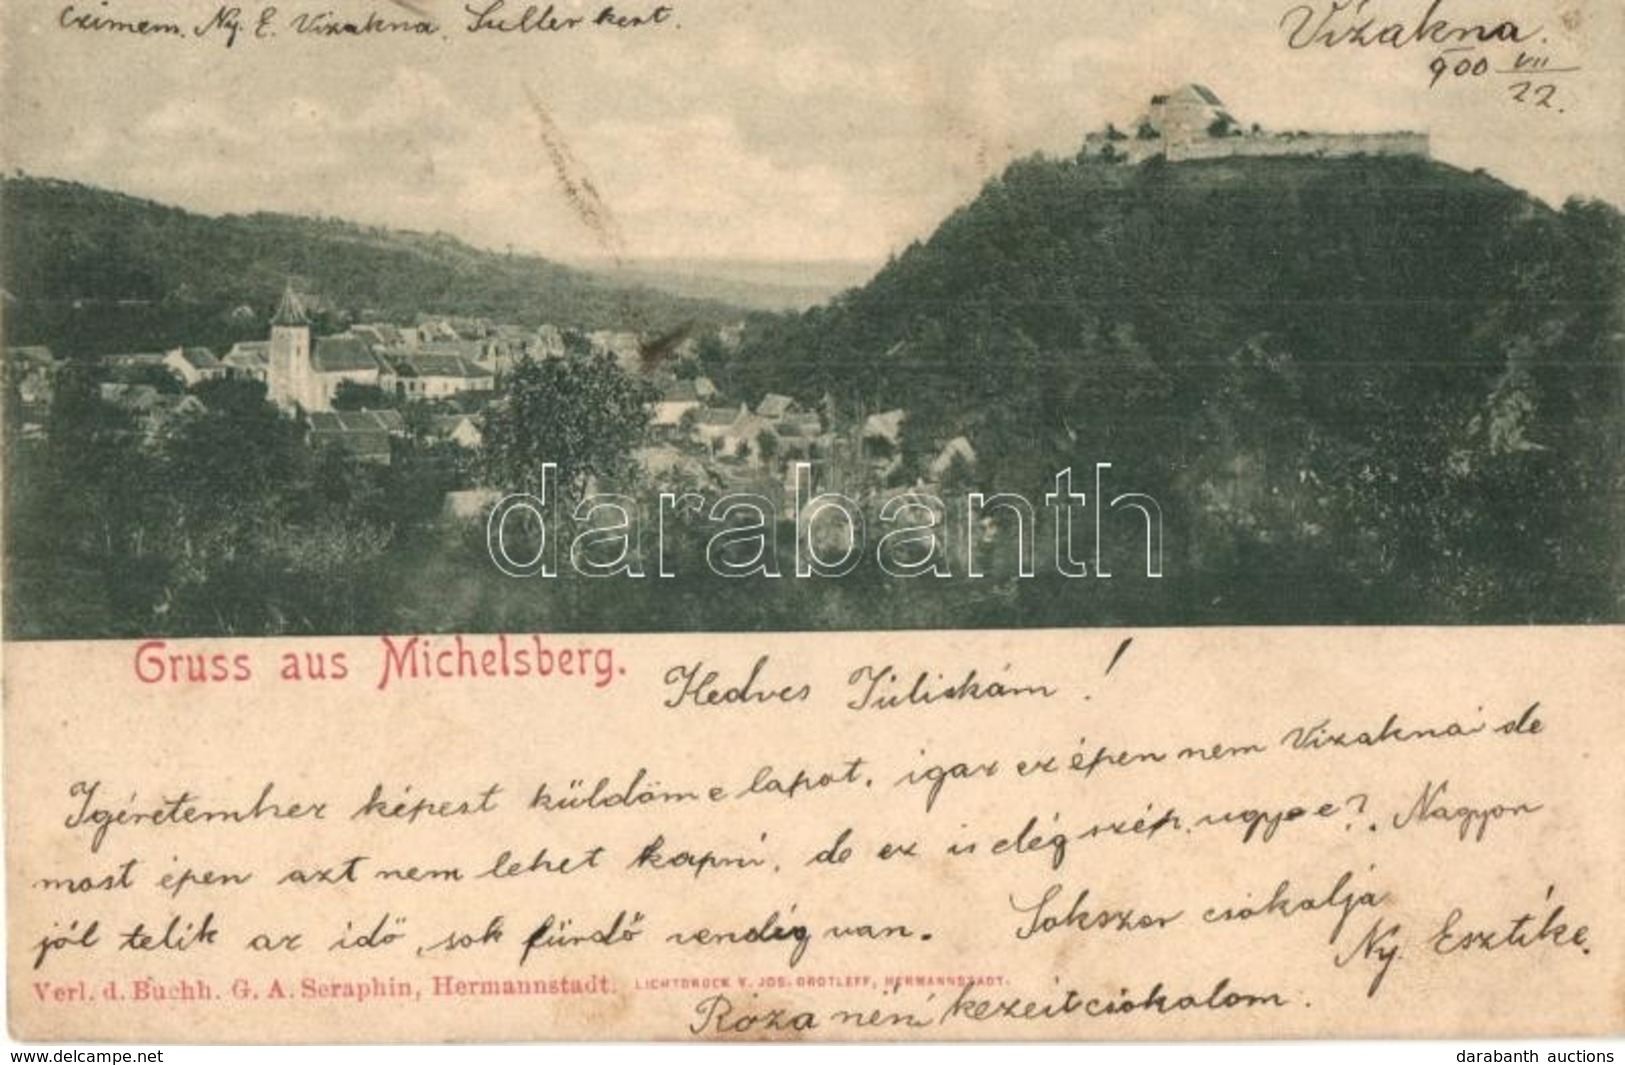 Czimem. Ny. E. Vizakna. Suller kert.
Vizakna.
900 VII
22.
darabanth
Gruss aus Michelsberg.
Hedves Juliskám!
Igéretemhez képest küldöm e lapot, igaz ez épen nem Vizaknai de
most épen azt nem lehet kapni, de ez is elég szép, ugy-e? Nagyon
jól telik az idő, sok fürdő vendég van. Sokszor csókolja
Ny. Esztike.
Verl. d. Buchh. G. A. Seraphin, Hermannstadt. LICHTDRUCK V. JOS. DROTLEFF, HERMANNSTADT.
Róza néni kezeit csókolom.
www.delcampe.net
darabanth auctions